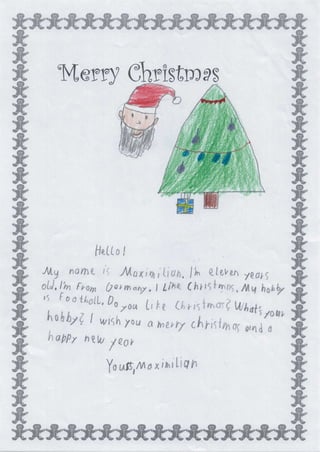 Merry Christmas
Hello!
My name is Maximilian. I'm eleven years
old. I'm from Germany. I like Christmas. My hobby
is Football. Do you like Christmas? What's your
hobby? I wish you a merry christmas and a
happy new year
Yours, Maximilian